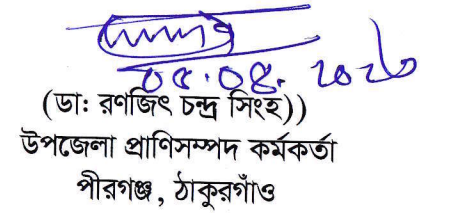 ০৫.০৪.২০২৩
(ডাঃ রণজিৎ চন্দ্র সিংহ))
উপজেলা প্রাণিসম্পদ কর্মকর্তা
পীরগঞ্জ, ঠাকুরগাঁও